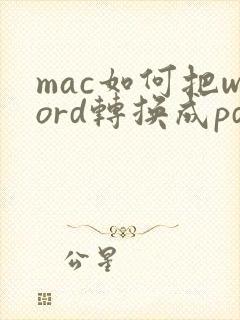 mac如何把w
ord轉換成pd
公星